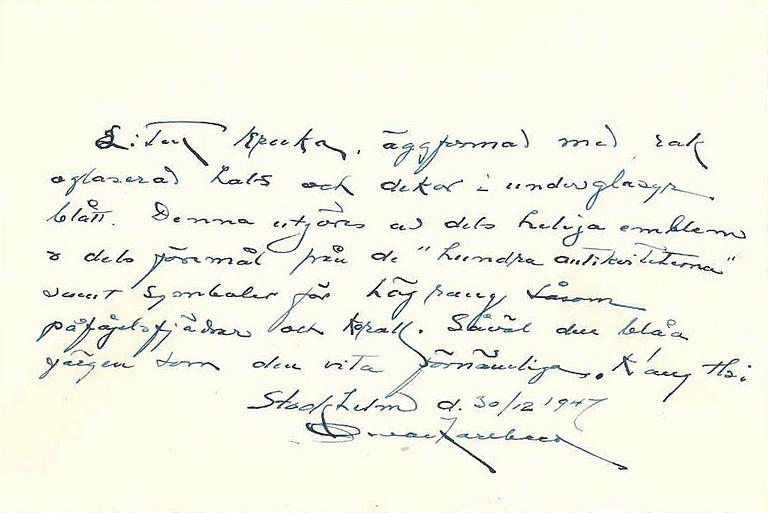 Liten kruka, äggformad med rak
oglaserad hals och dekor i underglasyr
blått. Denna utgöres av dels heliga emblem
o dels föremål från de "hundra antikviteterna"
samt symboler för hög rang såsom
påfågelsfjädrar och korall. Såväl den blåa
färgen som den vita förnämliga. K'ang Hsi
Stockholm d. 30/12 1947
Orvar Karlbeck